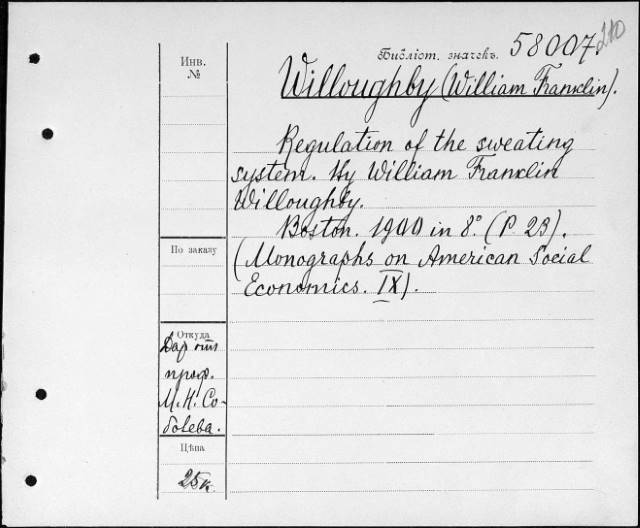 Инв.
№
Библіот. значекъ. 58007.
210
Willoughby (William Franklin).
Regulation of the sweating
system. By William Franklin
Willoughby.
Boston. 1900 in 8° (P. 23).
(Monographs on American Social
Economics. IX).
По заказу
Откуда
Дар от
проф.
М. Н. Со-
болева.
Цѣна
25 к.